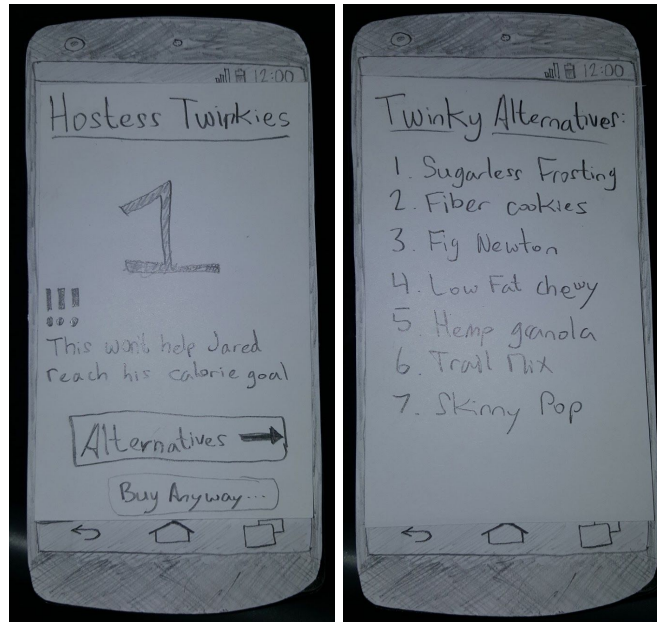 12:00
Hostess Twinkies
1
!!!
This wont help Jared
reach his calorie goal
Alternatives →
Buy Anyway...
12:00
Twinky Alternatives:
1. Sugarless Frosting
2. Fiber cookies
3. Fig Newton
4. Low Fat chewy
5. Hemp granola
6. Trail Mix
7. Skinny Pop